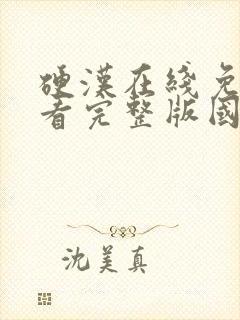 硬漢在綫免
看完整版國
沈美真